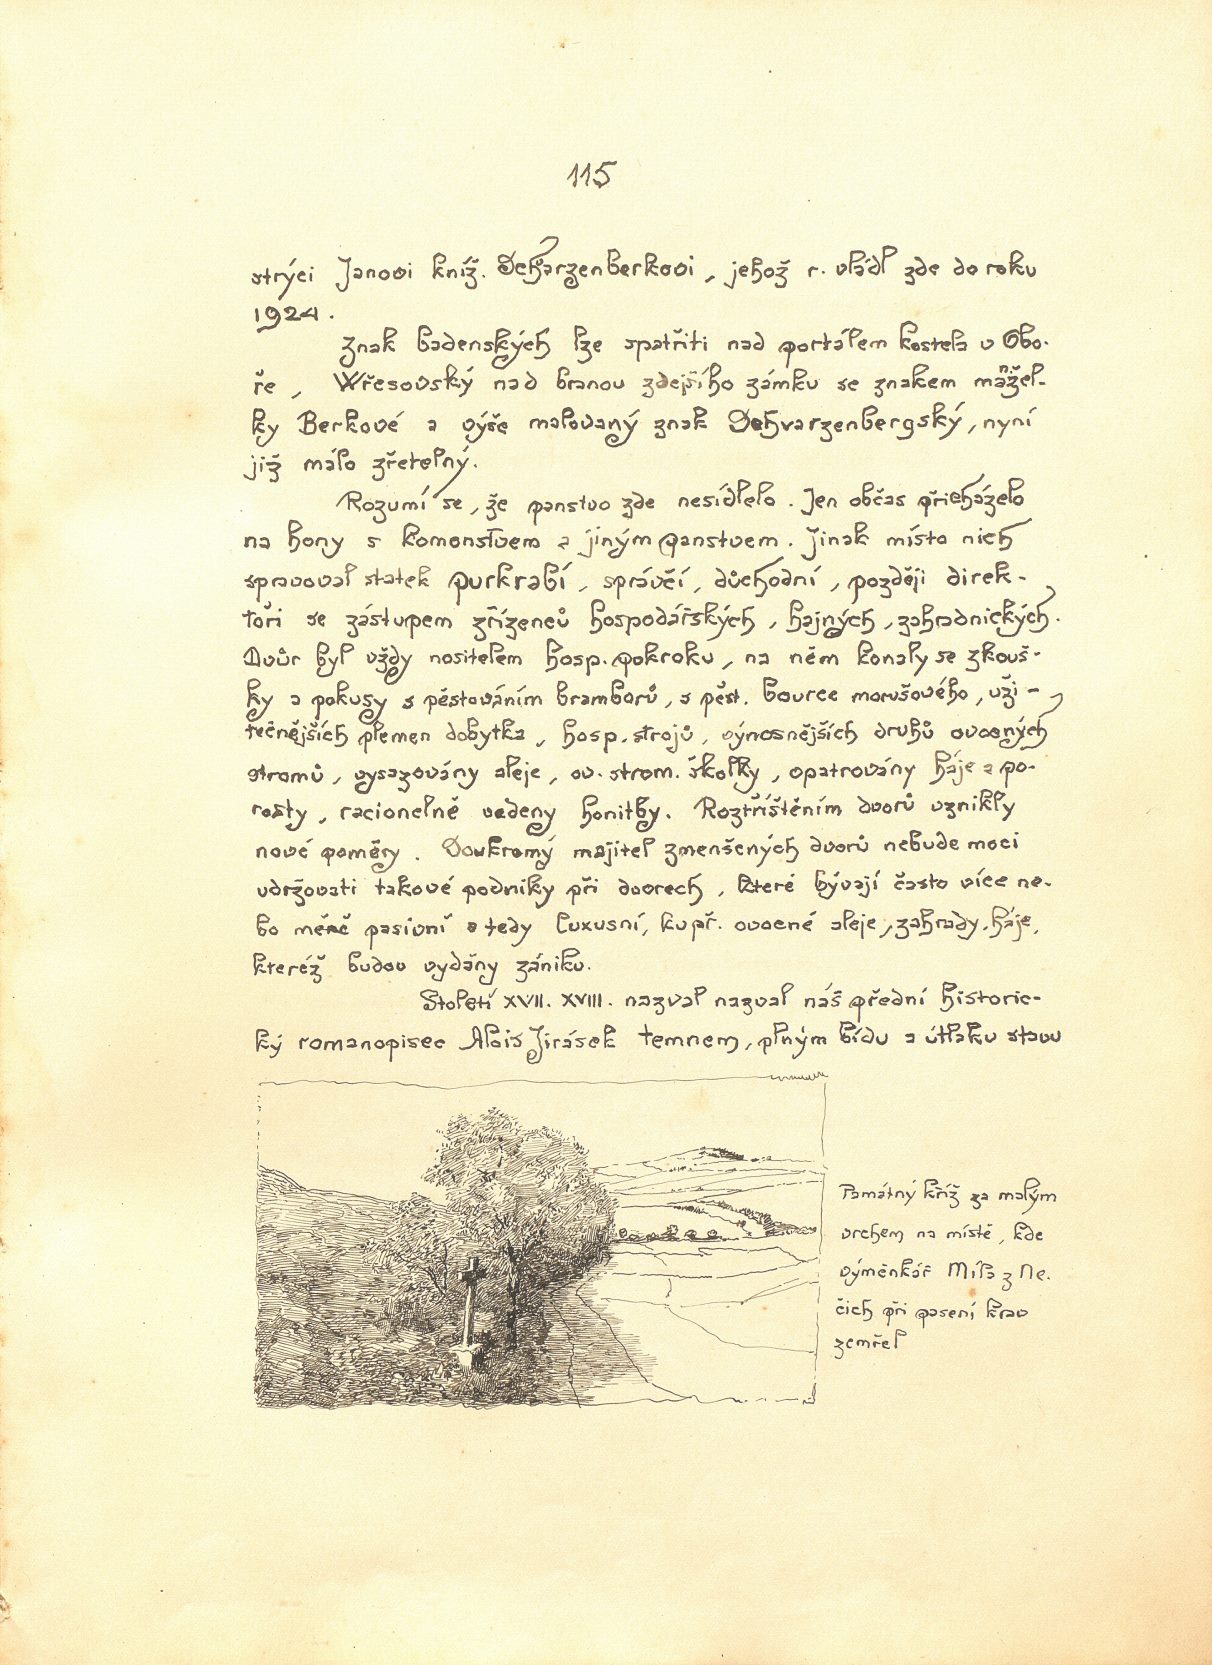 115
strýci Janovi kníž. Schvarzenberkovi, jehož r. vládl zde do roku
1924.
Znak badenských lze spatřiti nad portálem kostela v Obo-
ře, Wřesovský nad branou zdejšího zámku se znakem manžel-
ky Berkové a výše malovaný znak Schvarzenbergský, nyní
již málo zřetelný.
Rozumí se, že panstvo zde nesídlelo. Jen občas přicházelo
na hony s komonstvem a jiným panstvem. Jinak místo nich
spravoval statek purkrabí, správčí, důchodní, později direk-
toři se zástupem zřízenců hospodářských, hajných, zahradnických.
Dvůr byl vždy nositelem hosp. pokroku, na něm konaly se zkouš-
ky a pokusy s pěstováním bramborů, s pěst. bource morušového, uži-
tečnějších plemen dobytka, hosp. strojů, výnosnějších druhů ovocných
stromů, vysazovány aleje, ov. strom. školky, opatrovány háje a po-
rosty, racionelně vedeny honitby. Roztříštěním dvorů vznikly
nové poměry. Soukromý majitel zmenšených dvorů nebude moci
udržovati takové podniky při dvorech, které bývají často více ne-
bo méně pasivní a tedy luxusní, kupř. ovocné aleje, zahrady, háje,
kteréž budou vydány zániku.
Století XVII. XVIII. nazval nazval náš přední historic-
ký romanopisec Alois Jirásek temnem, plným bídu a útlaku stavu
Památný kříž za malým
vrchem na místě, kde
výměnkář Míla z Ne-
čich při pasení krav
zemřel